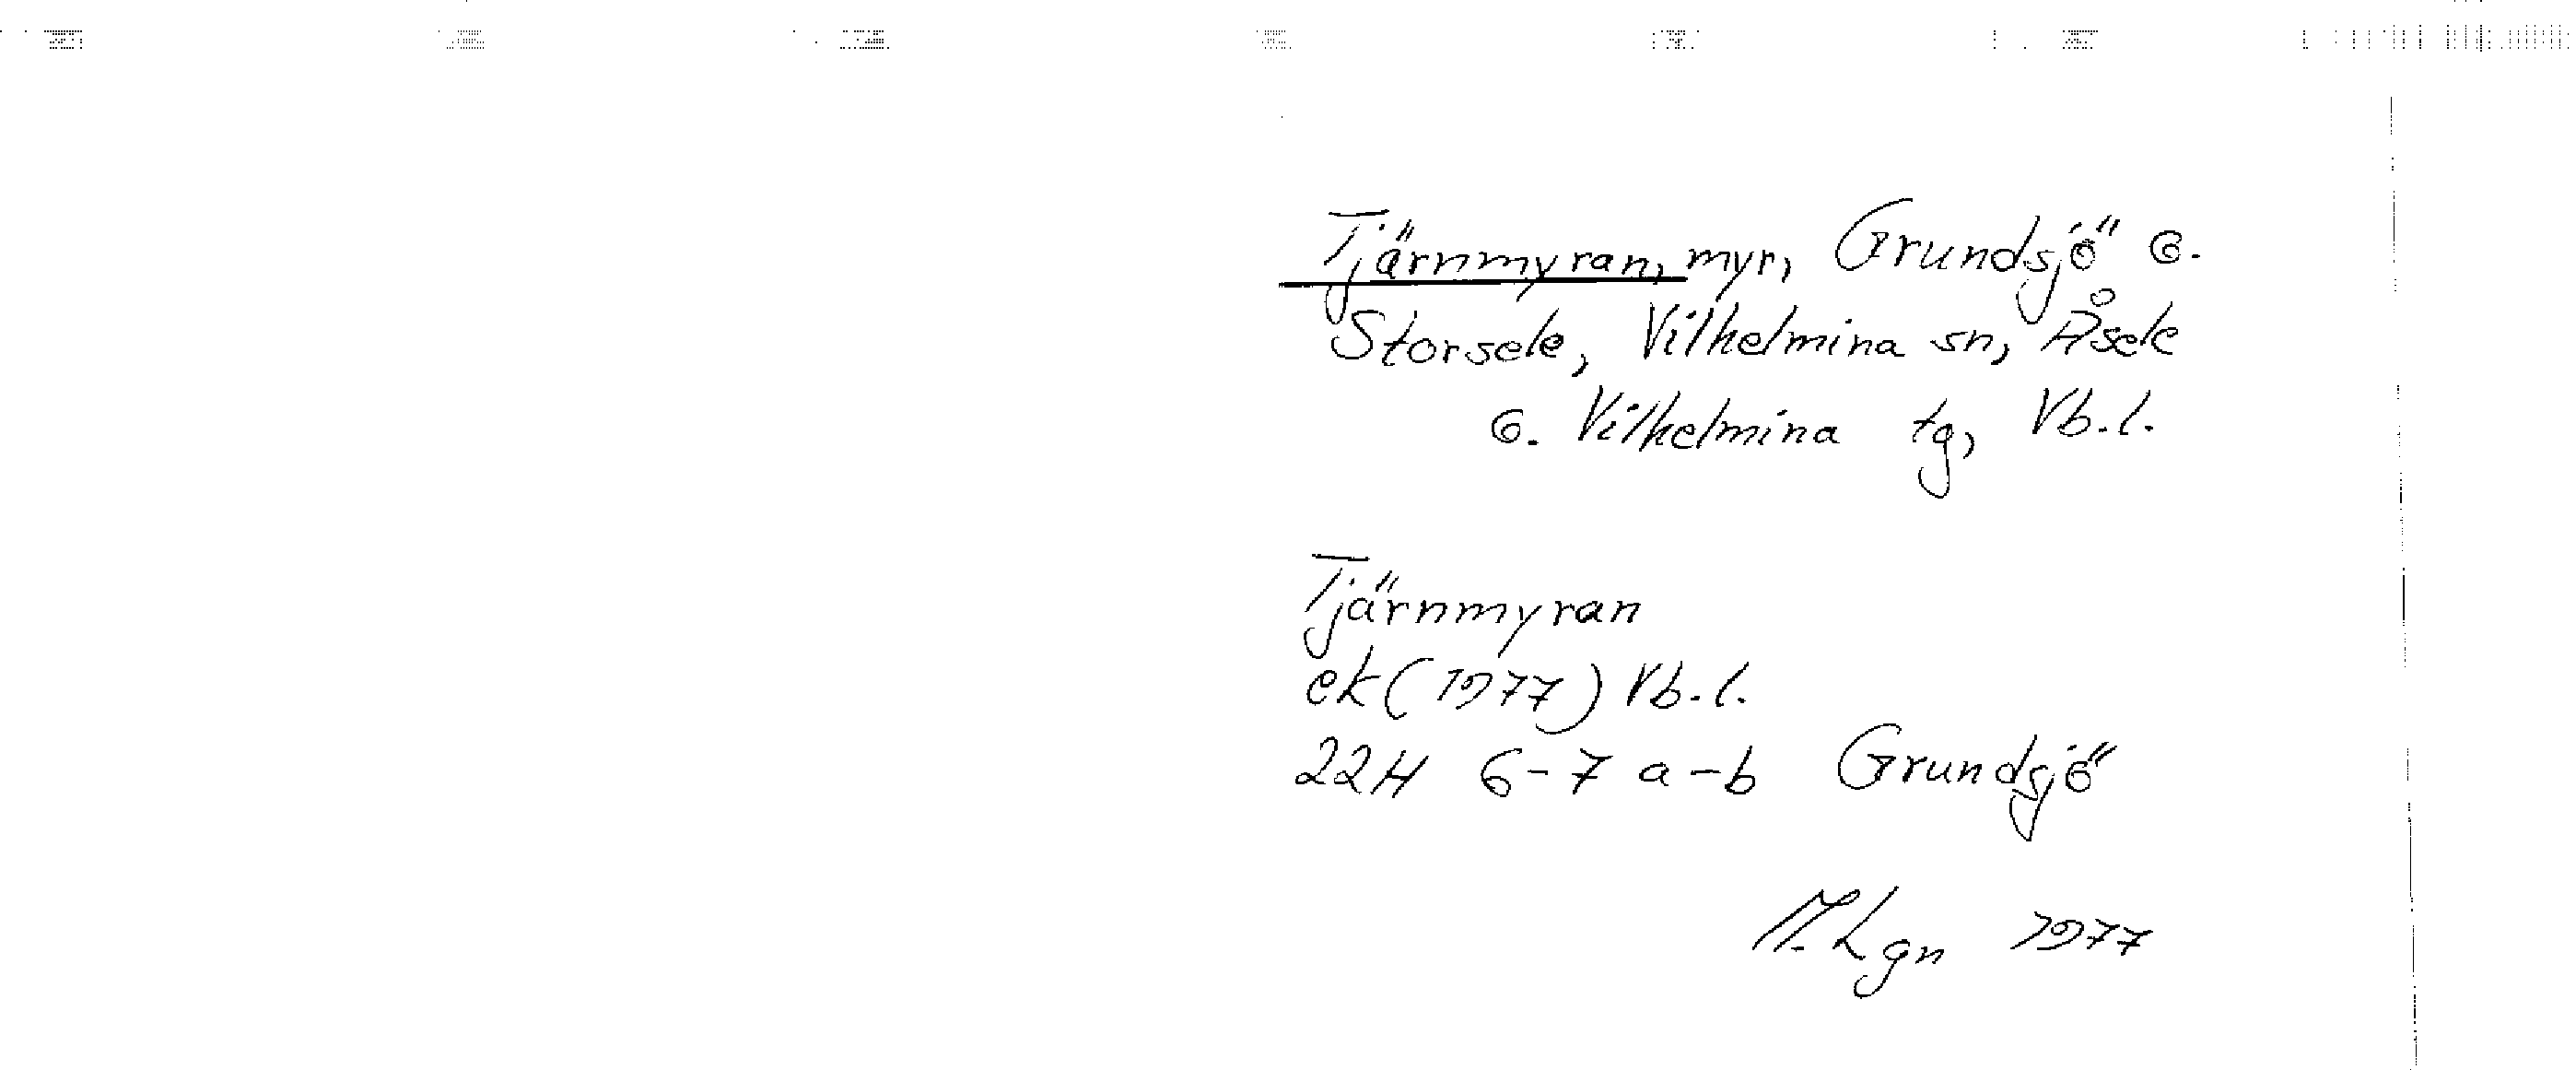 Tjärnmyran, myr, Grundsjö o.
Storsele, Vilhelmina sn, Åsele
o. Vilhelmina tg, Vb.l.
Tjärnmyran
ek (1977) Vb.l.
22H 6-7 a-b Grundsjö
M.Lgn 1977